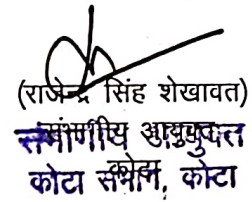 (राजेन्द्र सिंह शेखावत)
संभागीय आयुक्त
कोटा
कोटा संभाग, कोटा